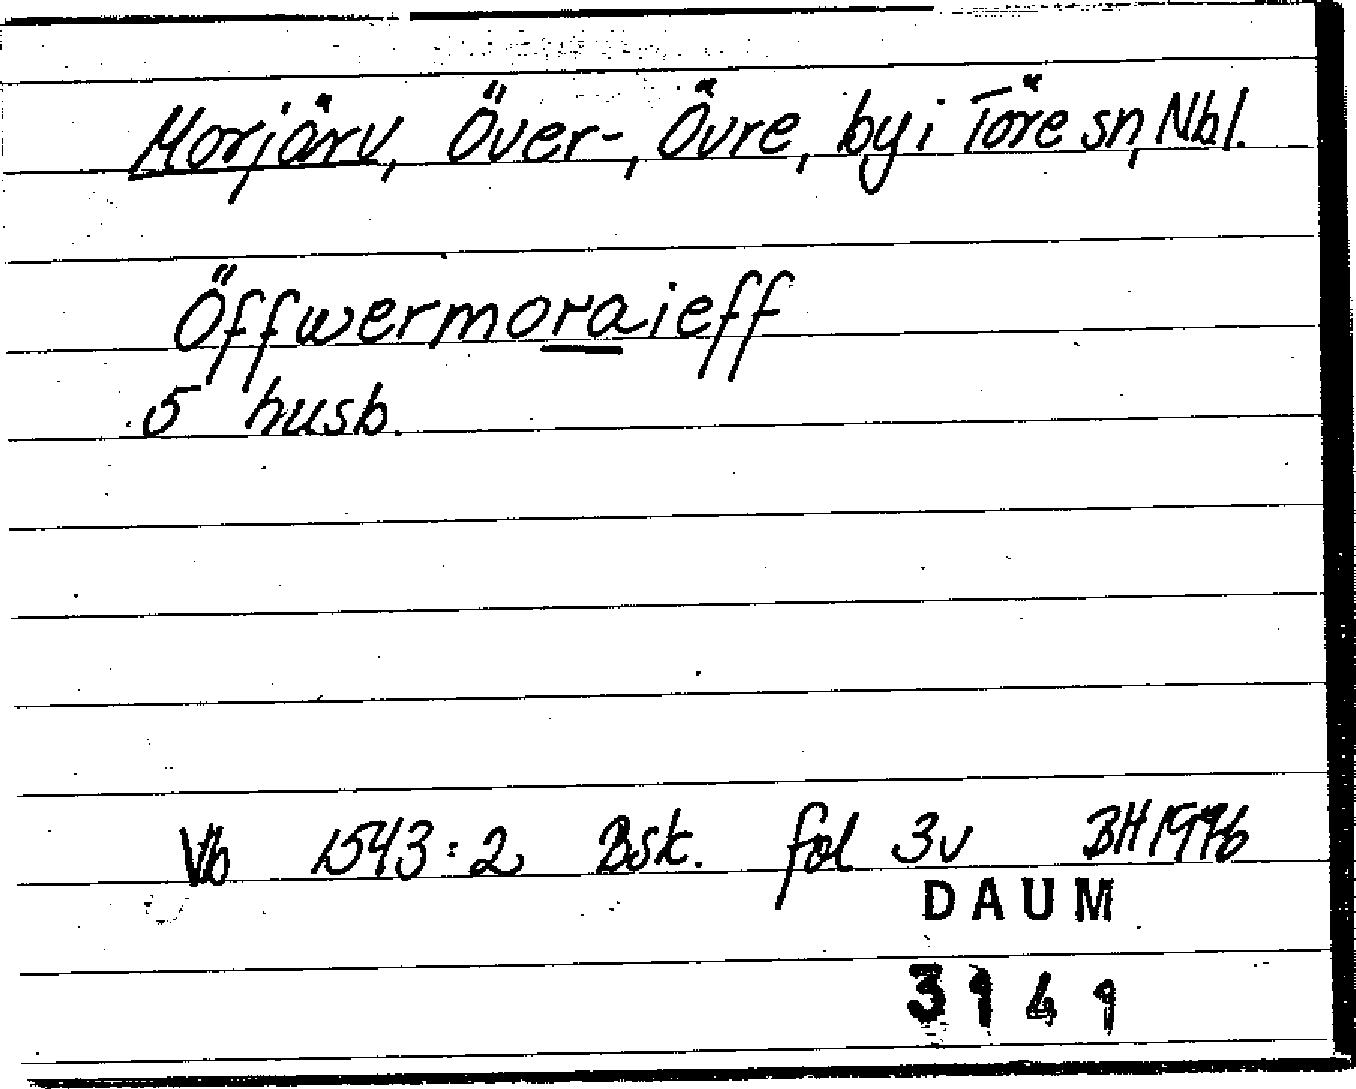 Morjärv, Över-, Övre, by i Töre sn, Nbl.
Öffwermoraieff
5 husb.
Vb 1543:2 Bsk. fol 3v BH 1976
DAUM
3141